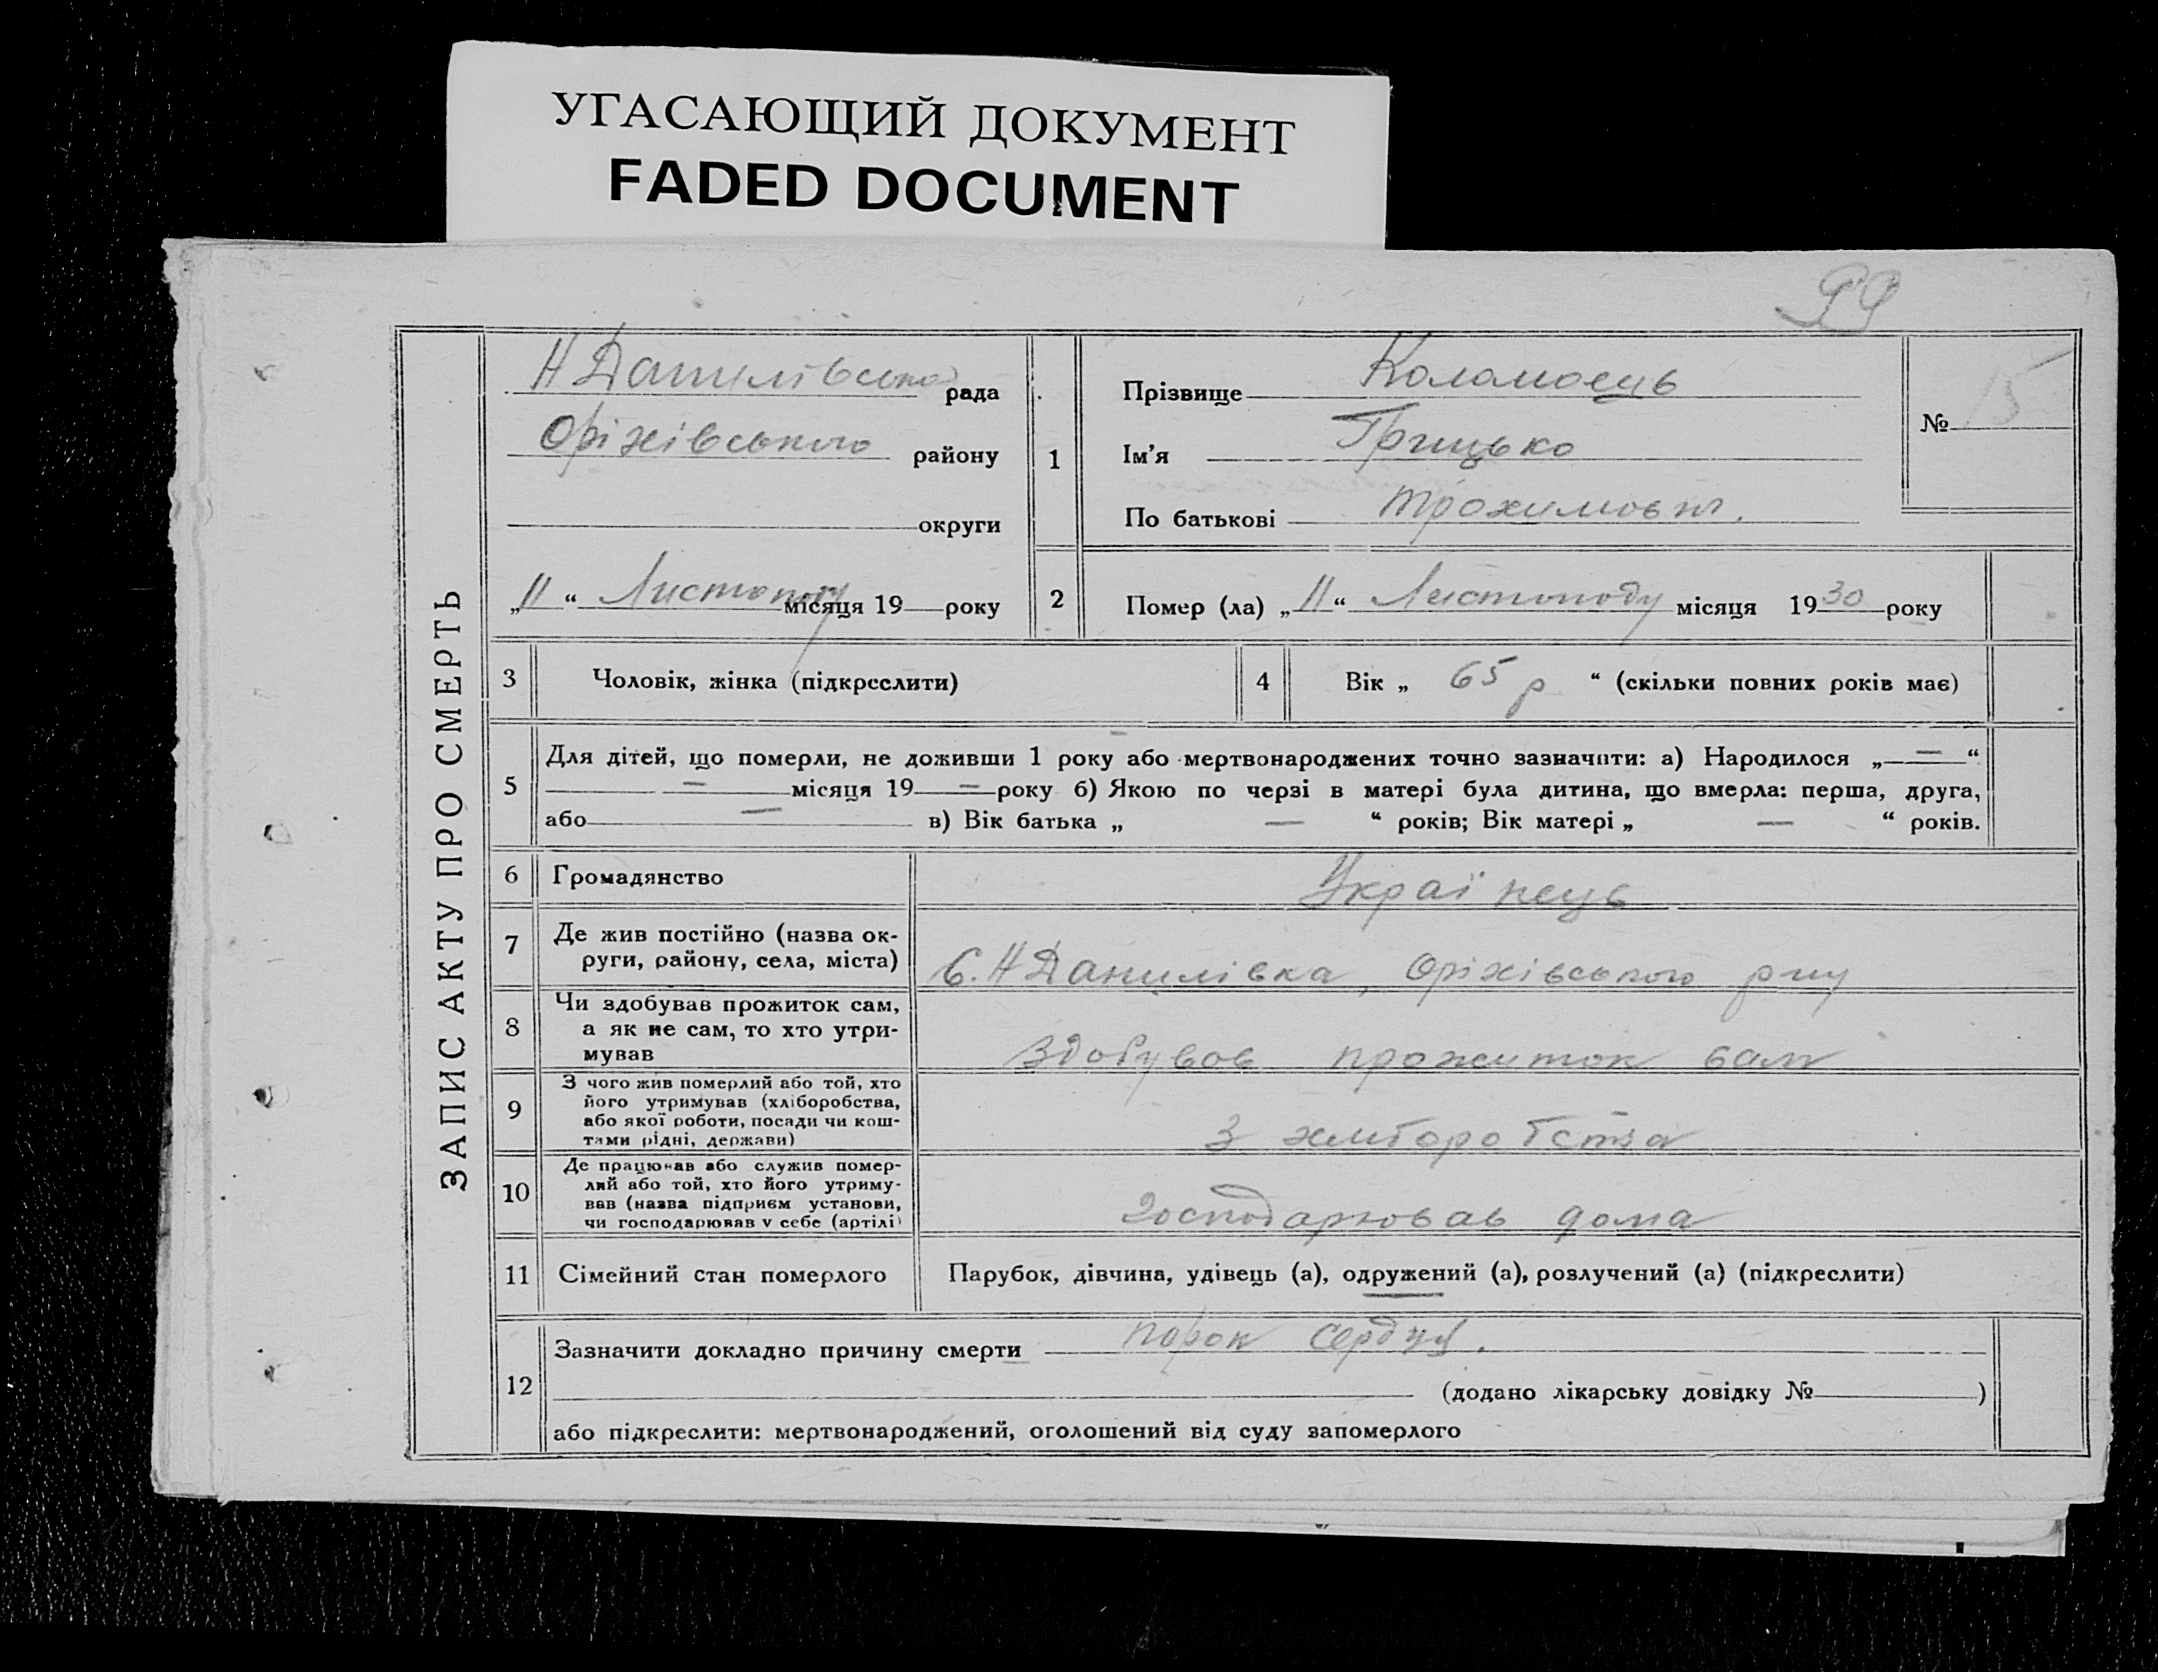 УГАСАЮЩИЙ ДОКУМЕНТ
FADED DOCUMENT
99
ЗАПИС АКТУ ПРО СМЕРТЬ
Н Данилівська рада
Оріхівського району
округи
„11“ Листопаду місяця 19 року
1
Прізвище Коломоець
Ім'я Грицько
По батькові Трохимович.
№ 15
2
Помер (ла) „11“ Листопаду місяця 1930 року
3 Чоловік, жінка (підкреслити)
4 Вік „ 65 р “ (скільки повних років має)
5
Для дітей, що померли, не доживши 1 року або мертвонароджених точно зазначити: а) Народилося „—“
— місяця 19 — року б) Якою по черзі в матері була дитина, що вмерла: перша, друга,
або — в) Вік батька „ — “ років; Вік матері „ — “ років.
6 Громадянство Українець
7 Де жив постійно (назва ок-
руги, району, села, міста)
С. Н Данилівка, Оріхівського р-ну
8 Чи здобував прожиток сам,
а як не сам, то хто утри-
мував
Здобував прожиток сам
9 З чого жив померлий або той, хто
його утримував (хліборобства,
або якої роботи, посади чи кош-
тами рідні, держави)
З хліборобства
10 Де працював або служив помер-
лий або той, хто його утриму-
вав (назва підприєм установи,
чи господарював у себе (артілі)
Господарював дома
11 Сімейний стан померлого Парубок, дівчина, удівець (а), одружений (а), розлучений (а) (підкреслити)
12
Зазначити докладно причину смерти порок сердця.
(додано лікарську довідку № )
або підкреслити: мертвонароджений, оголошений від суду запомерлого